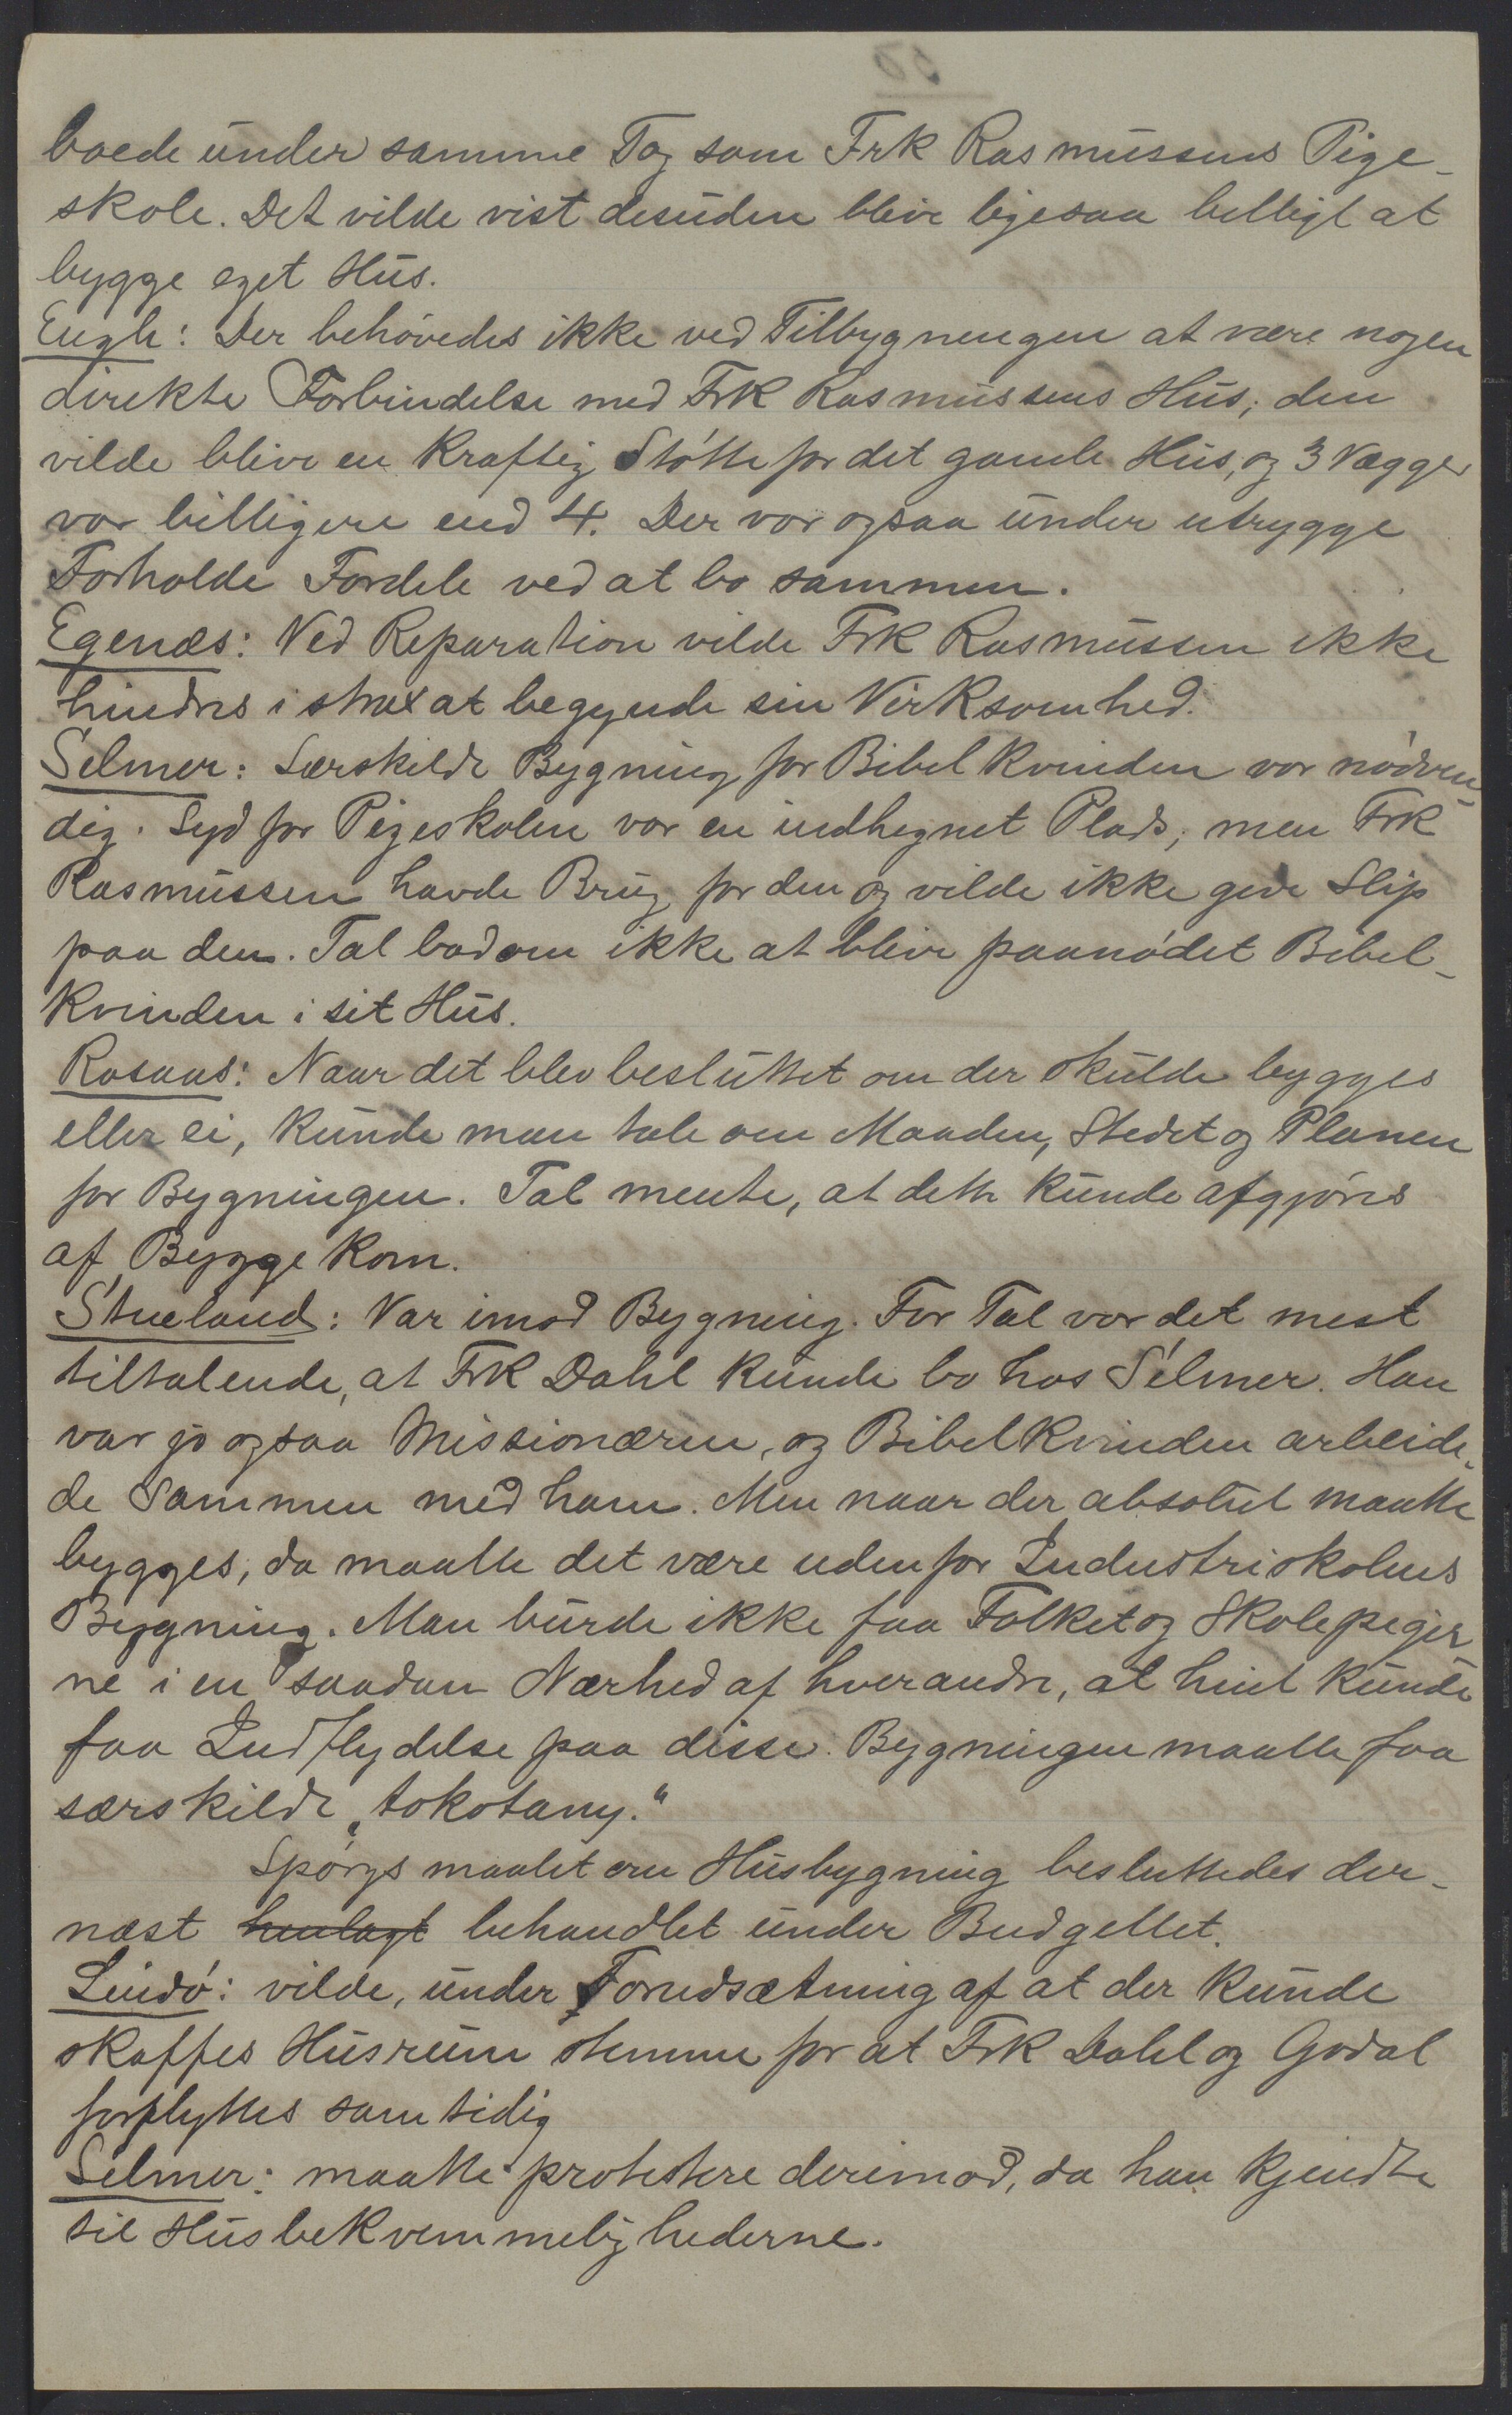 boede under samme Tag som Frk Rasmussens Pige-
skole. Det vilde vist desuden blive ligesaa billigt at
bygge eget Hus.
Engh: Der behövedes ikke ved Tilbygningen at være nogen
direkte Forbindelse med Frk Rasmussens Hus; den
vilde blive en kraftig Stötte for det gamle Hus, og 3 Vægge
var billigere end 4. Der var ogsaa under utrygge
Forholde Fordele ved at bo sammen.
Egenæs: Ved Reparation vilde Frk Rasmussen ikke
hindres i strax at begynde sin Virksomhed.
Selmer: Særskildt Bygning for Bibelkvinden var nödven-
dig. Syd for Pigeskolen var en indhegnet Plads; men Frk
Rasmussen havde Brug for den og vilde ikke give Slip
paa den. Tal bad om ikke at blive paanödet Bibel-
kvinden i sit Hus.
Rosaas: Naar det blev besluttet om der skulde bygges
eller ei, kunde man tale om Maaden, Stedet og Planen
for Bygningen. Tal mente, at dette kunde afgjöres
af Byggekom.
Stueland: Var imod Bygning. For Tal var det mest
tiltalende, at Frk Dahl kunde bo hos Selmer. Han
var jo ogsaa Missionæren, og Bibelkvinden arbeide-
de sammen med ham. Men naar der absolut maatte
bygges, da maatte det være udenfor Industriskolens
Bygning. Man burde ikke faa Folket og Skolepiger
ne i en saadan Nærhed af hverandre, at hint kunde
faa Indflydelse paa disse. Bygningen maatte faa
særskildt „tokotany."
Spörgsmaalet om Husbygning besluttedes der-
næst henlagt behandlet under Budgettet.
Lindö: vilde, under Forudsætning af at der kunde
skaffes Husrum stemme for at Frk Dahl og Godal
forflyttes samtidig
Selmer: maatte protestere derimod, da han kjendte
til Husbekvemmelighederne.